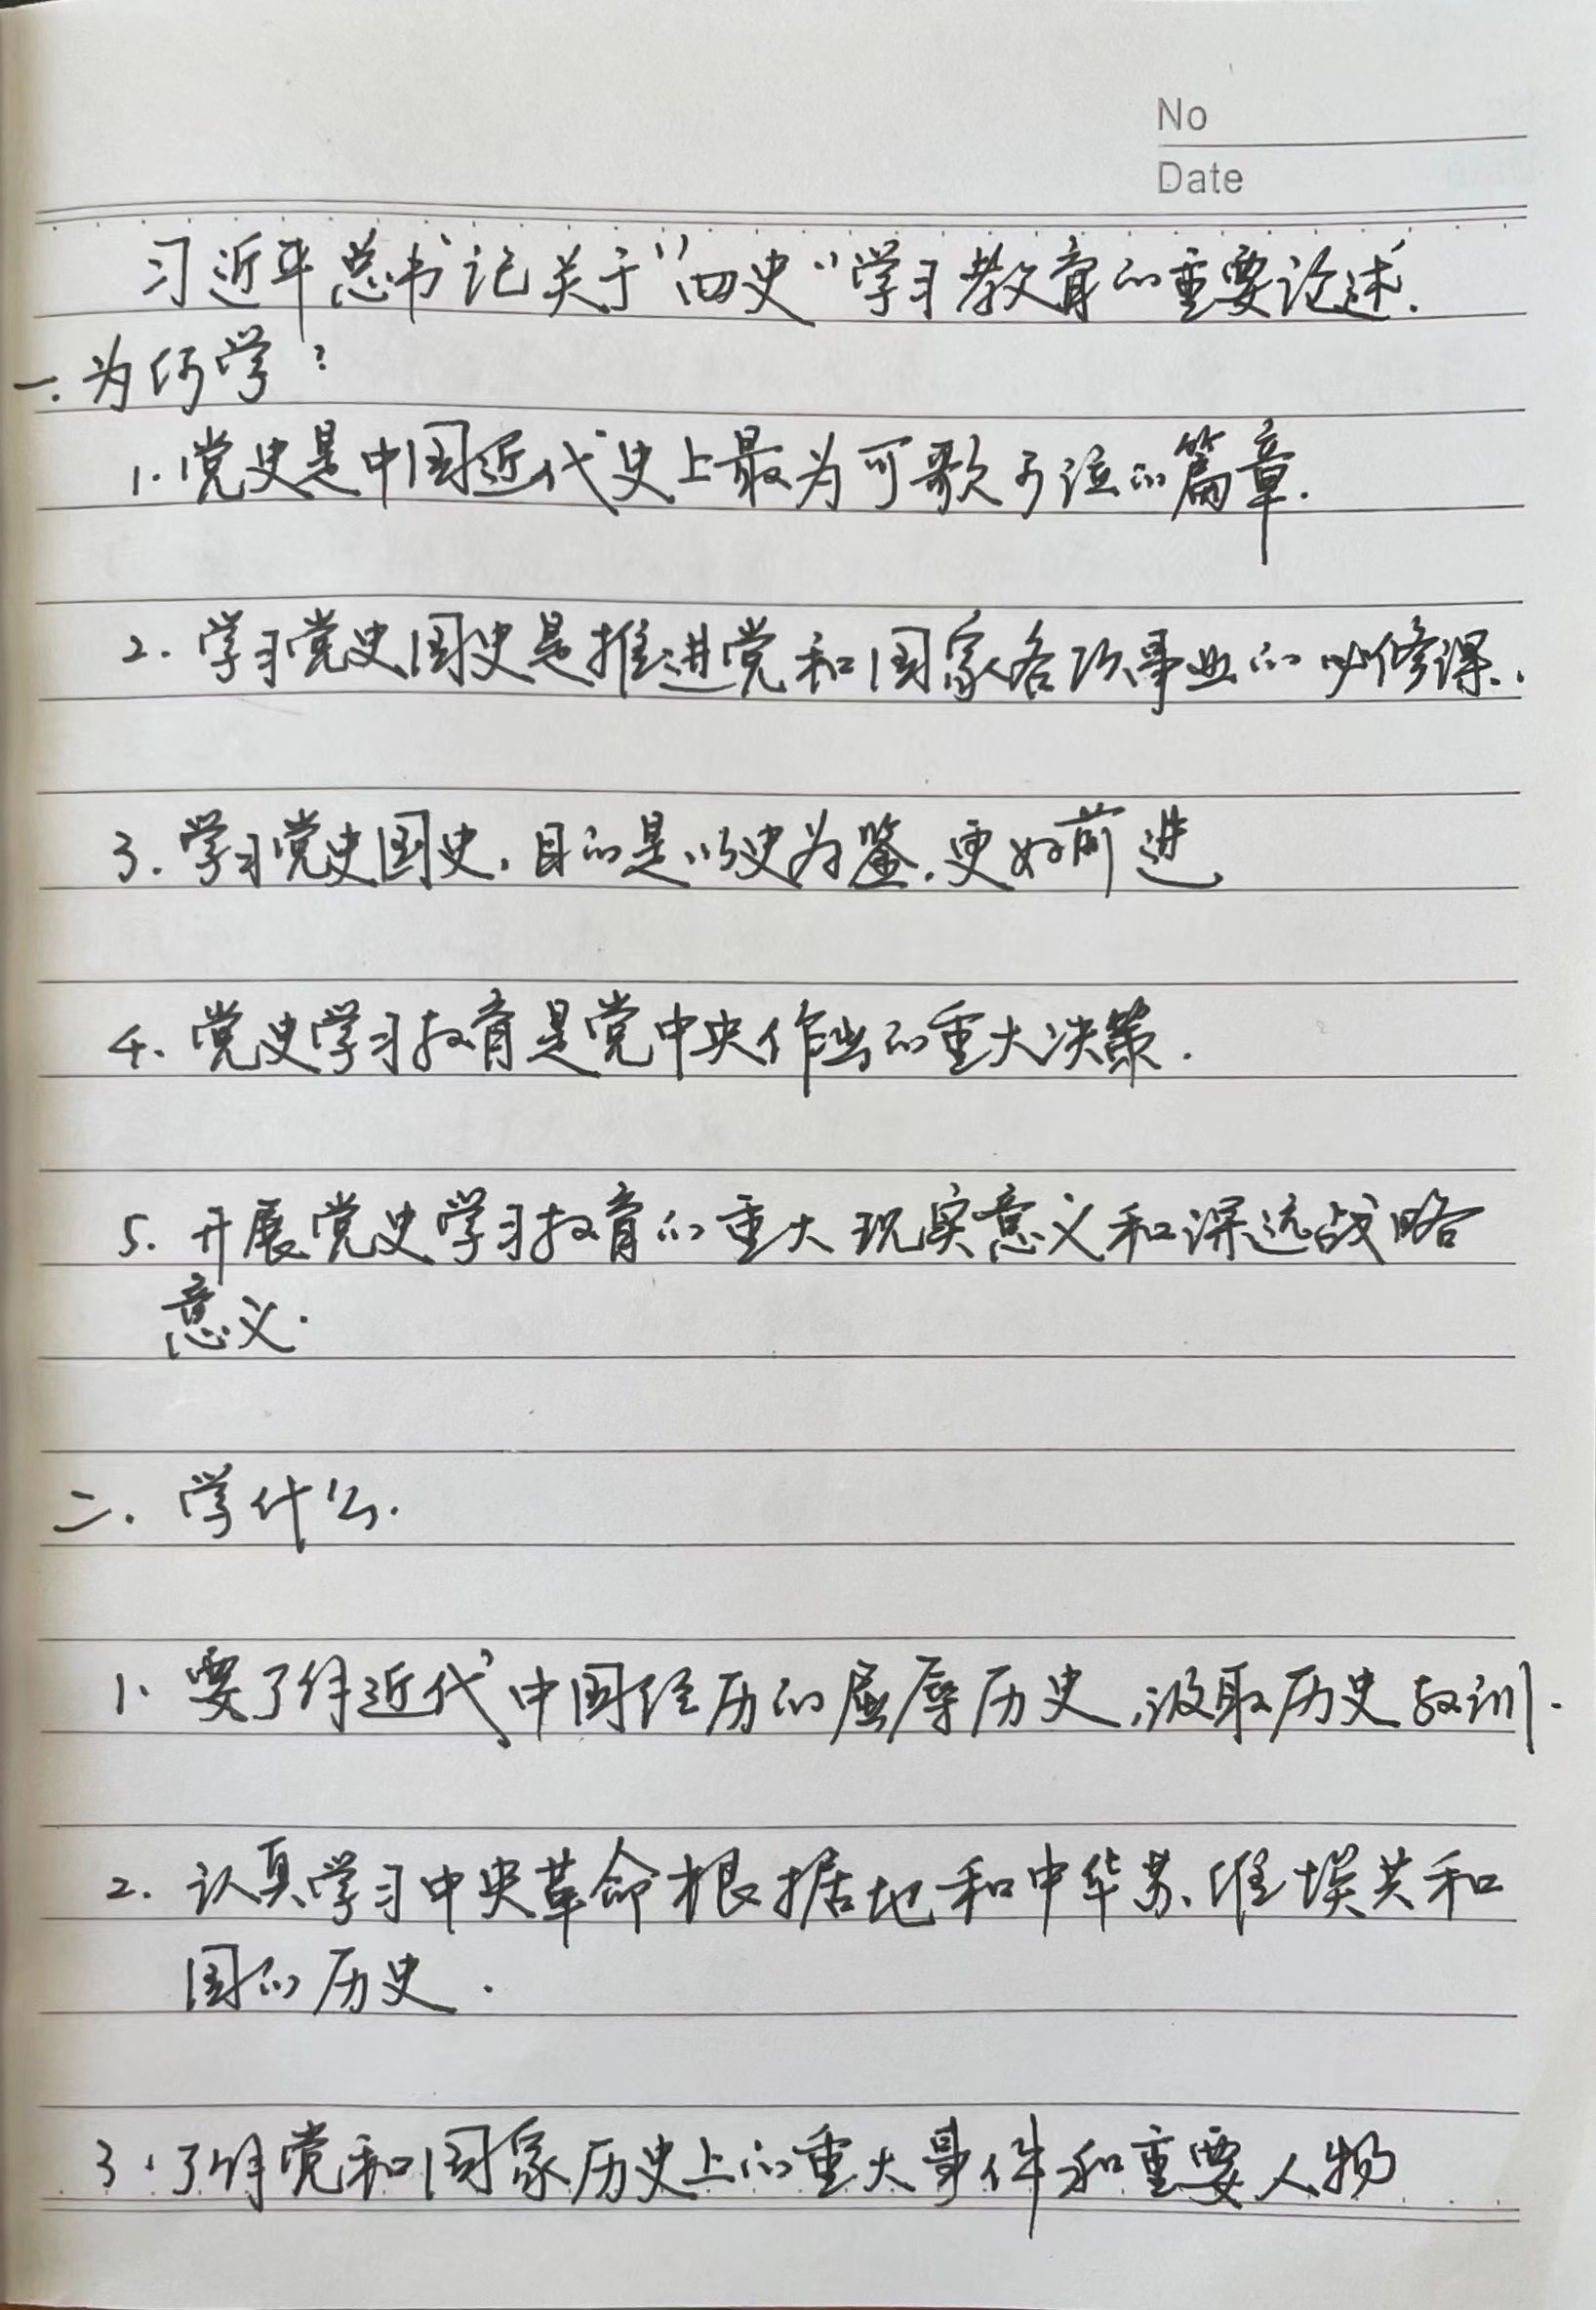 No
Date
习近平总书记关于"四史"学习教育的重要论述.
一.为何学?
1.党史是中国近代史上最为可歌可泣的篇章.
2.学习党史国史是推进党和国家各项事业的必修课.
3.学习党史国史,目的是以史为鉴.更好前进
4.党史学习教育是党中央作出的重大决策.
5.开展党史学习教育的重大现实意义和深远战略
意义.
二.学什么.
1.要了解近代中国经历的屈辱历史,汲取历史教训.
2.认真学习中央革命根据地和中华苏维埃共和
国的历史.
3.了解党和国家历史上的重大事件和重要人物